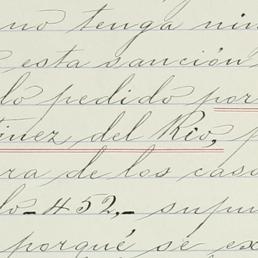 no tenga nin
esta sanción
lo pedido por
tinez del Rio,
ra de los caso
lo-452,- supu
porqué se ex